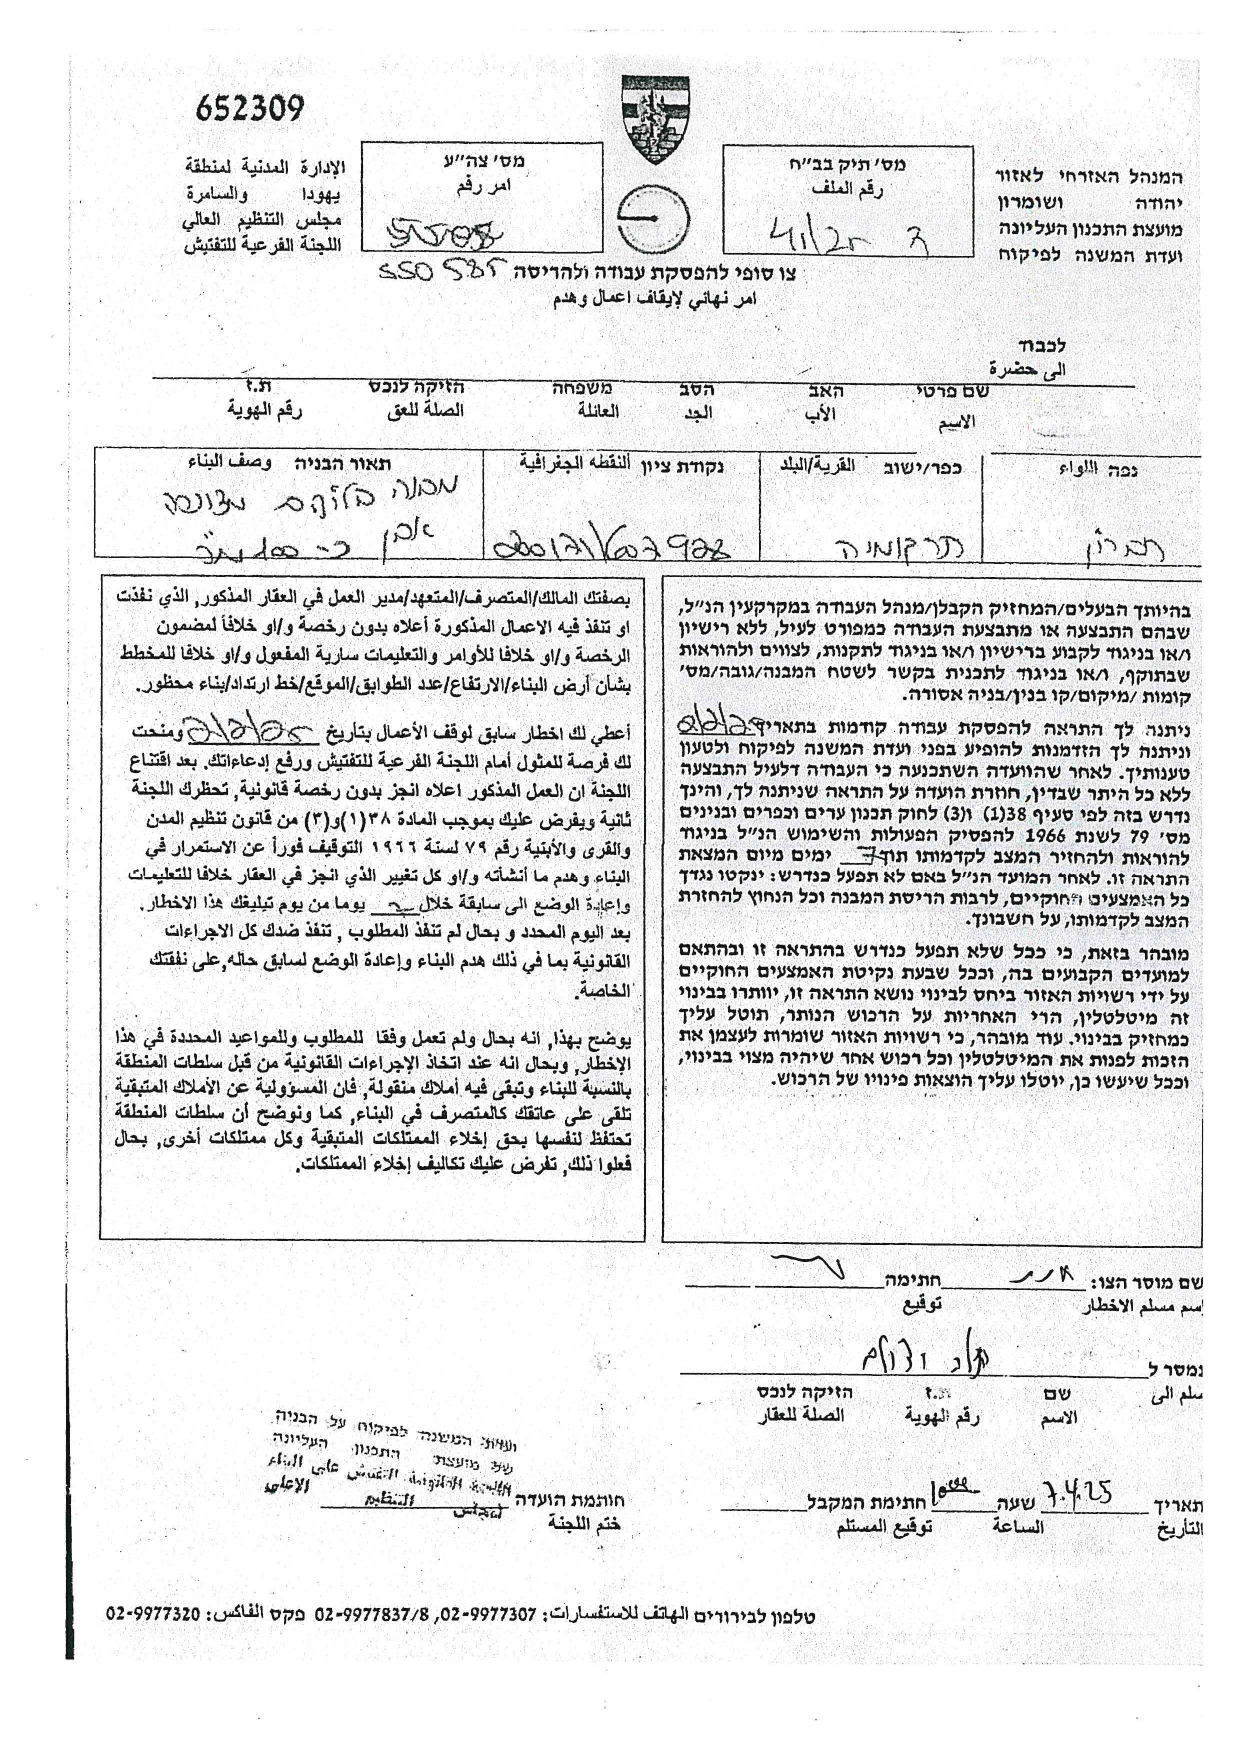 652309
המנהל האזרחי לאזור
יהודה ושומרון
מועצת התכנון העליונה
ועדת המשנה לפיקוח
מס׳ תיק בב״ח
رقم الملف
ב 41/25
מס׳ צה״ע
امر رقم
الإدارة المدنية لمنطقة
يهودا والسامرة
مجلس التنظيم العالي
اللجنة الفرعية للتفتيش
צו סופי להפסקת עבודה ולהריסה 550585
امر نهائي لإيقاف اعمال وهدم
לכבוד
الى حضرة
שם פרטי האב הסב משפחה הזיקה לנכס ת.ז
الاسم الأب الجد العائلة الصلة للعق رقم الهوية
נפה اللواء
חברון
כפר/ישוב القرية/البلد
תרקומיה
נקודת ציון النقطه الجغرافية
תאור הבניה وصف البناء
מבנה בלוקים מצופה
אבן כ-
בהיותך הבעלים/המחזיק הקבלן/מנהל העבודה במקרקעין הנ״ל,
שבהם התבצעה או מתבצעת העבודה כמפורט לעיל, ללא רישיון
ו/או בניגוד לקבוע ברישיון ו/או בניגוד לתקנות, לצווים ולהוראות
שבתוקף, ו/או בניגוד לתכנית בקשר לשטח המבנה/גובה/מס׳
קומות /מיקום/קו בנין/בניה אסורה.
ניתנה לך התראה להפסקת עבודה קודמת בתאריך
וניתנה לך הזדמנות להופיע בפני ועדת המשנה לפיקוח ולטעון
טענותיך. לאחר שהוועדה השתכנעה כי העבודה דלעיל התבצעה
ללא כל היתר שבדין, חוזרת הועדה על התראה שניתנה לך, והינך
נדרש בזה לפי סעיף 38(1) ו(3) לחוק תכנון ערים וכפרים ובנינים
מס׳ 79 לשנת 1966 להפסיק הפעולות והשימוש הנ״ל בניגוד
להוראות ולהחזיר המצב לקדמותו תוך 7 ימים מיום המצאת
התראה זו. לאחר המועד הנ״ל באם לא תפעל כנדרש: ינקטו נגדך
כל האמצעים החוקיים, לרבות הריסת המבנה וכל הנחוץ להחזרת
המצב לקדמותו, על חשבונך.
מובהר בזאת, כי ככל שלא תפעל כנדרש בהתראה זו ובהתאם
למועדים הקבועים בה, וככל שבעת נקיטת האמצעים החוקיים
על ידי רשויות האזור ביחס לבינוי נושא התראה זו, יוותרו בבינוי
זה מיטלטלין, הרי האחריות על הרכוש הנותר, תוטל עליך
כמחזיק בבינוי. עוד מובהר, כי רשויות האזור שומרות לעצמן את
הזכות לפנות את המיטלטלין וכל רכוש אחר שיהיה מצוי בבינוי,
וככל שיעשו כן, יוטלו עליך הוצאות פינויו של הרכוש.
بصفتك المالك/المتصرف/المتعهد/مدير العمل في العقار المذكور, الذي نفذت
او تنفذ فيه الاعمال المذكورة أعلاه بدون رخصة و/او خلافاً لمضمون
الرخصة و/او خلافا للأوامر والتعليمات سارية المفعول و/او خلافا للمخطط
بشأن أرض البناء/الارتفاع/عدد الطوابق/الموقع/خط ارتداد/بناء محظور.
أعطي لك اخطار سابق لوقف الأعمال بتأريخ ومنحت
لك فرصة للمثول أمام اللجنة الفرعية للتفتيش ورفع إدعاءاتك. بعد اقتناع
اللجنة ان العمل المذكور اعلاه انجز بدون رخصة قانونية, تحظرك اللجنة
ثانية ويفرض عليك بموجب المادة ٣٨(١)و(٣) من قانون تنظيم المدن
والقرى والأبنية رقم ٧٩ لسنة ١٩٦٦ التوقيف فوراً عن الاستمرار في
البناء وهدم ما أنشأته و/او كل تغيير الذي انجز في العقار خلافا للتعليمات
وإعادة الوضع الى سابقة خلال يوما من يوم تبليغك هذا الاخطار.
بعد اليوم المحدد و بحال لم تنفذ المطلوب , تنفذ ضدك كل الاجراءات
القانونية بما في ذلك هدم البناء وإعادة الوضع لسابق حاله,على نفقتك
الخاصة.
يوضح بهذا, انه بحال ولم تعمل وفقا للمطلوب وللمواعيد المحددة في هذا
الإخطار, وبحال انه عند اتخاذ الإجراءات القانونية من قبل سلطات المنطقة
بالنسبة للبناء وتبقى فيه أملاك منقولة, فان المسؤولية عن الأملاك المتبقية
تلقى على عاتقك كالمتصرف في البناء, كما ونوضح أن سلطات المنطقة
تحتفظ لنفسها بحق إخلاء الممتلكات المتبقية وكل ممتلكات أخرى, بحال
فعلوا ذلك, تفرض عليك تكاليف إخلاء الممتلكات.
שם מוסר הצו: חתימה
إسم مسلم الاخطار توقيع
נמסר ל
سلم الى שם ת.ז הזיקה לנכס
الاسم رقم الهوية الصلة للعقار
תאריך 7.4.25 שעה חתימת המקבל
التأريخ الساعة توقيع المستلم
ועדת המשנה לפיקוח על הבניה
של מועצת התכנון העליונה
اللجنة الثانوية للتفتيش على البناء
لمجلس التنظيم الاعلى
חותמת הועדה
ختم اللجنة
טלפון לבירורים الهاتف للاستفسارات: 02-9977307, 02-9977837/8 פקס الفاكس: 02-9977320